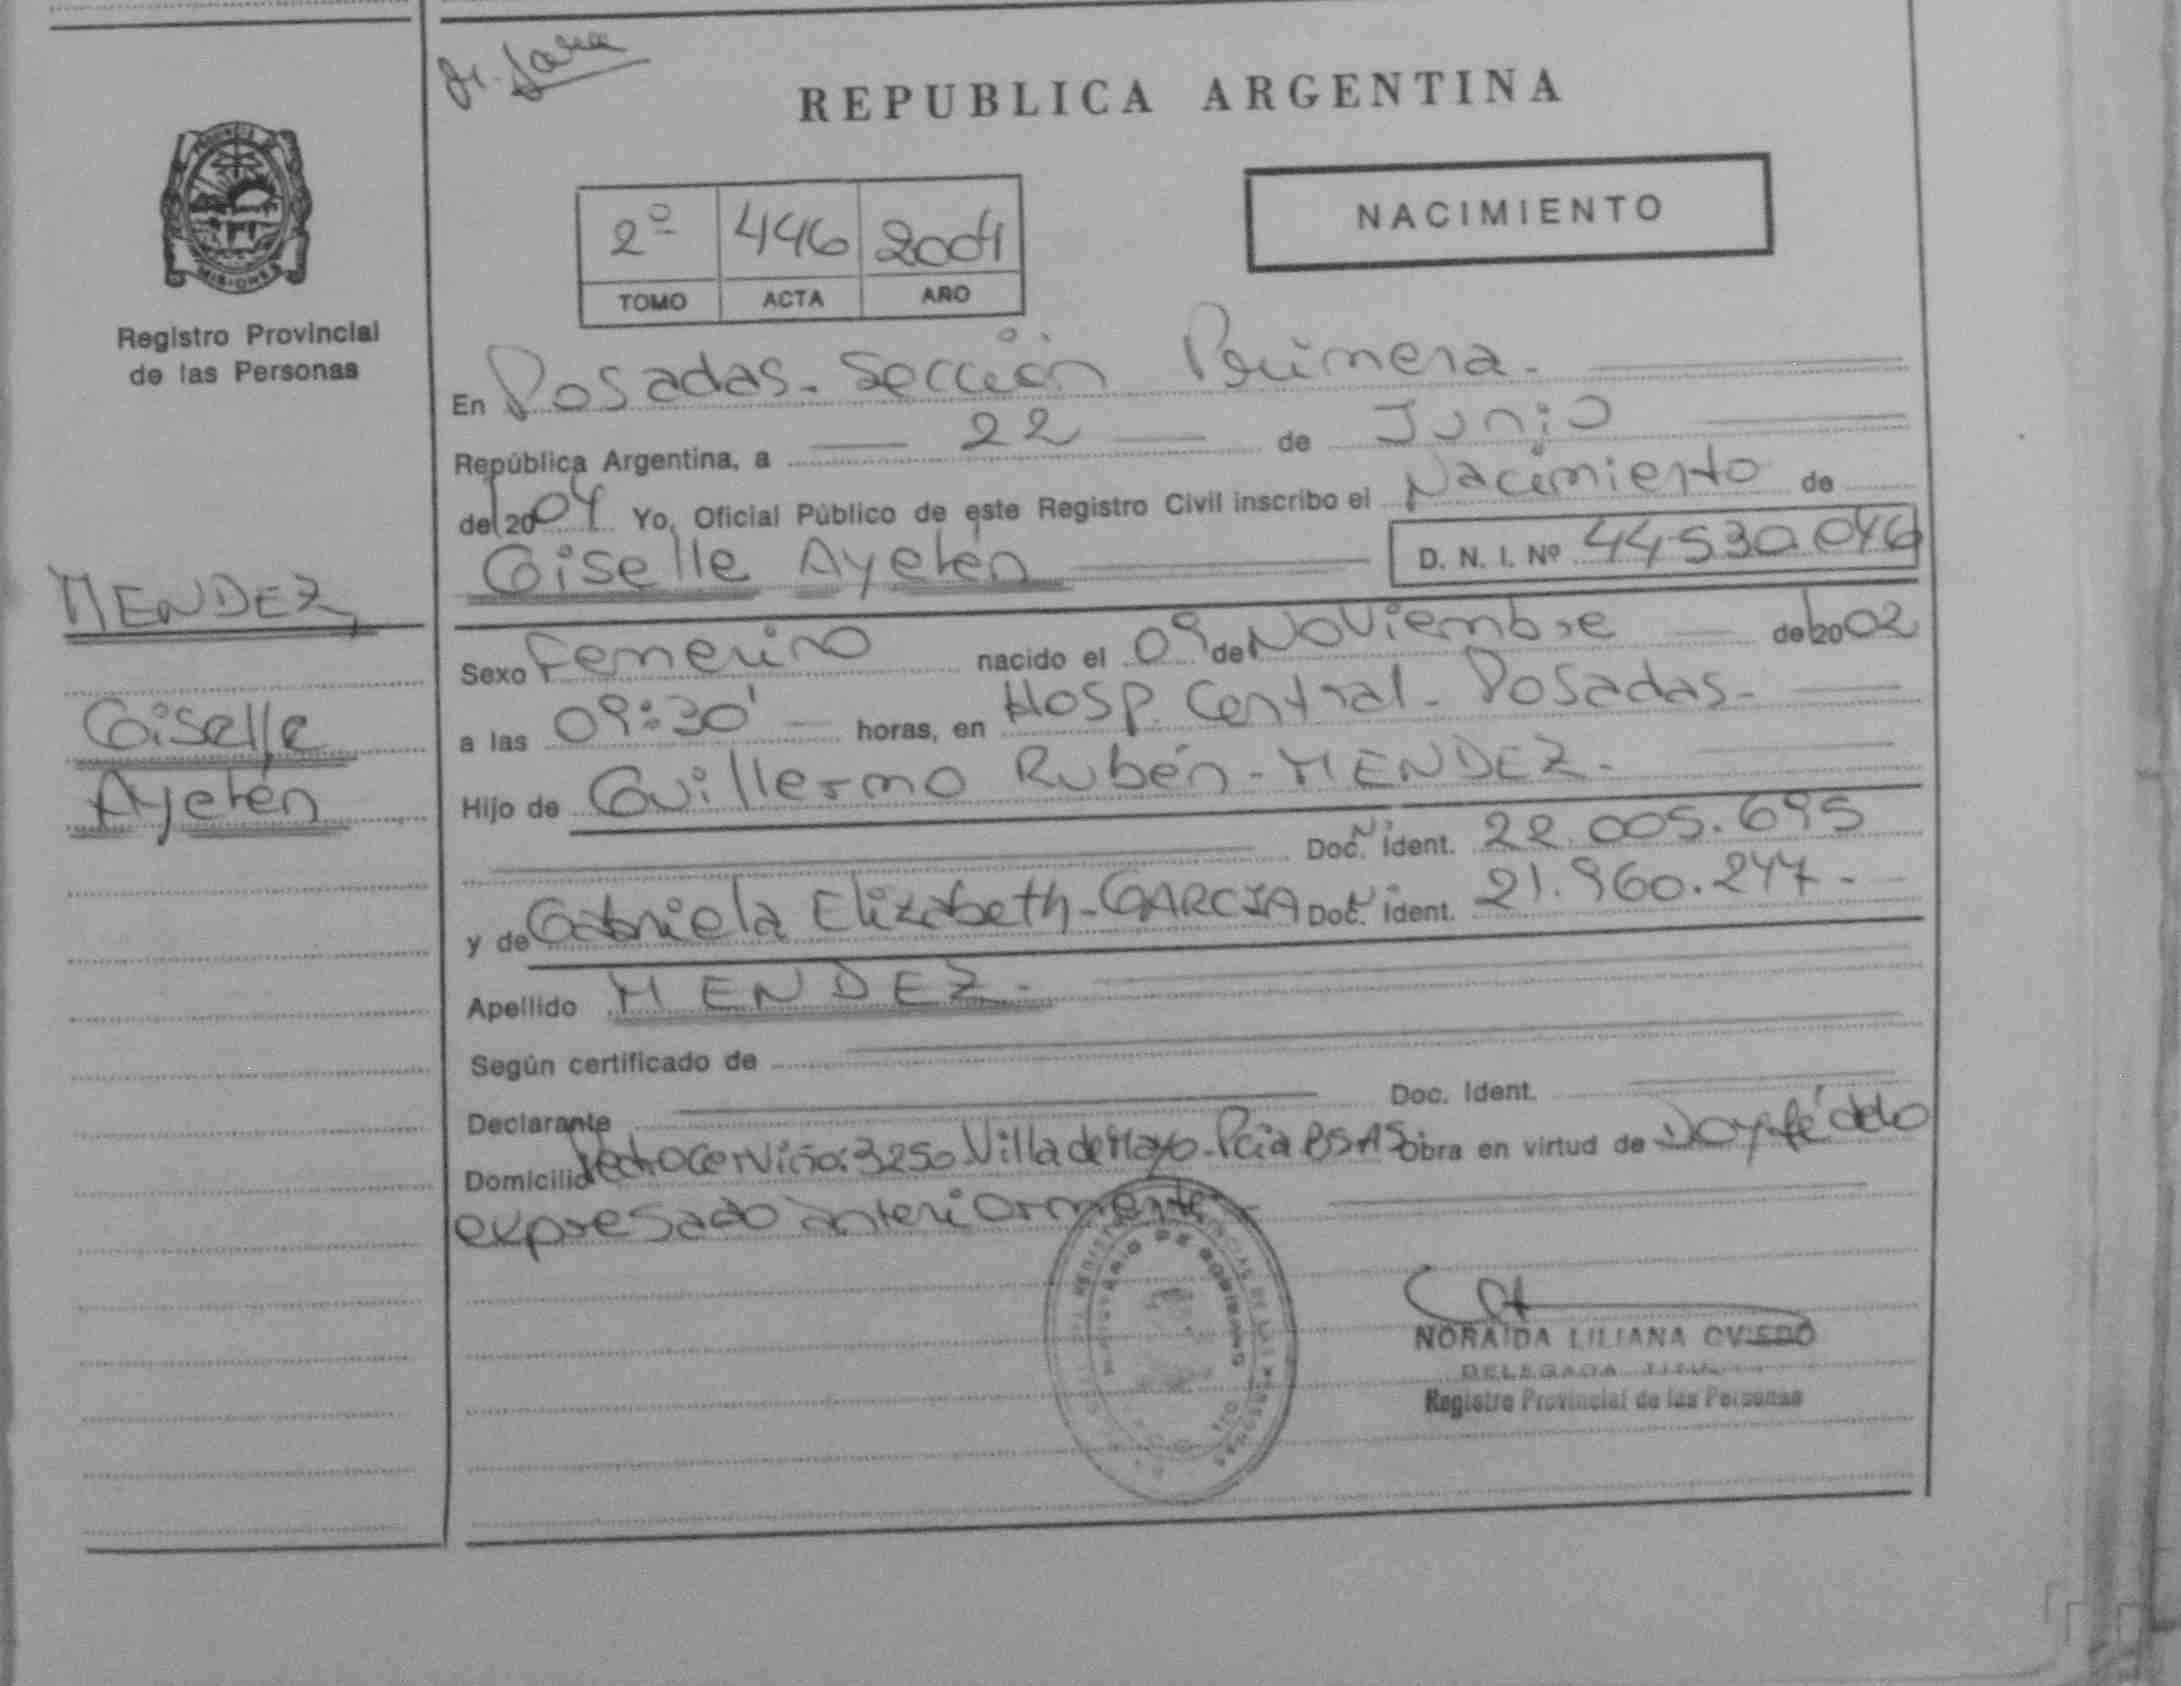 REPUBLICA ARGENTINA
NACIMIENTO
2º 446 2004
TOMO ACTA AÑO
MISIONES
Registro Provincial
de las Personas
MENDEZ
Giselle
Ayelén
En Posadas. Sección Primera.
República Argentina, a 22 de Junio
del 2004 Yo, Oficial Público de este Registro Civil inscribo el Nacimiento de
Giselle Ayelén D. N. I. Nº 44530.046
Sexo Femenino nacido el 09 de Noviembre de 2002
a las 09:30' horas, en Hosp. Central. Posadas-
Hijo de Guillermo Rubén-MENDEZ.
Doc. Ident. 22.005.695
y de Gabriela Elizabeth-GARCIA Doc. Ident. 21.960.247.-
Apellido MENDEZ.
Según certificado de
Declarante Doc. Ident.
Domicilio Pedro Cerviño: 3250 Villa de Mayo-Pcia BSAS obra en virtud de Doy fé delo
expresado anteriormente
NORAIDA LILIANA OVIEDO
DELEGADA
Registro Provincial de las Personas